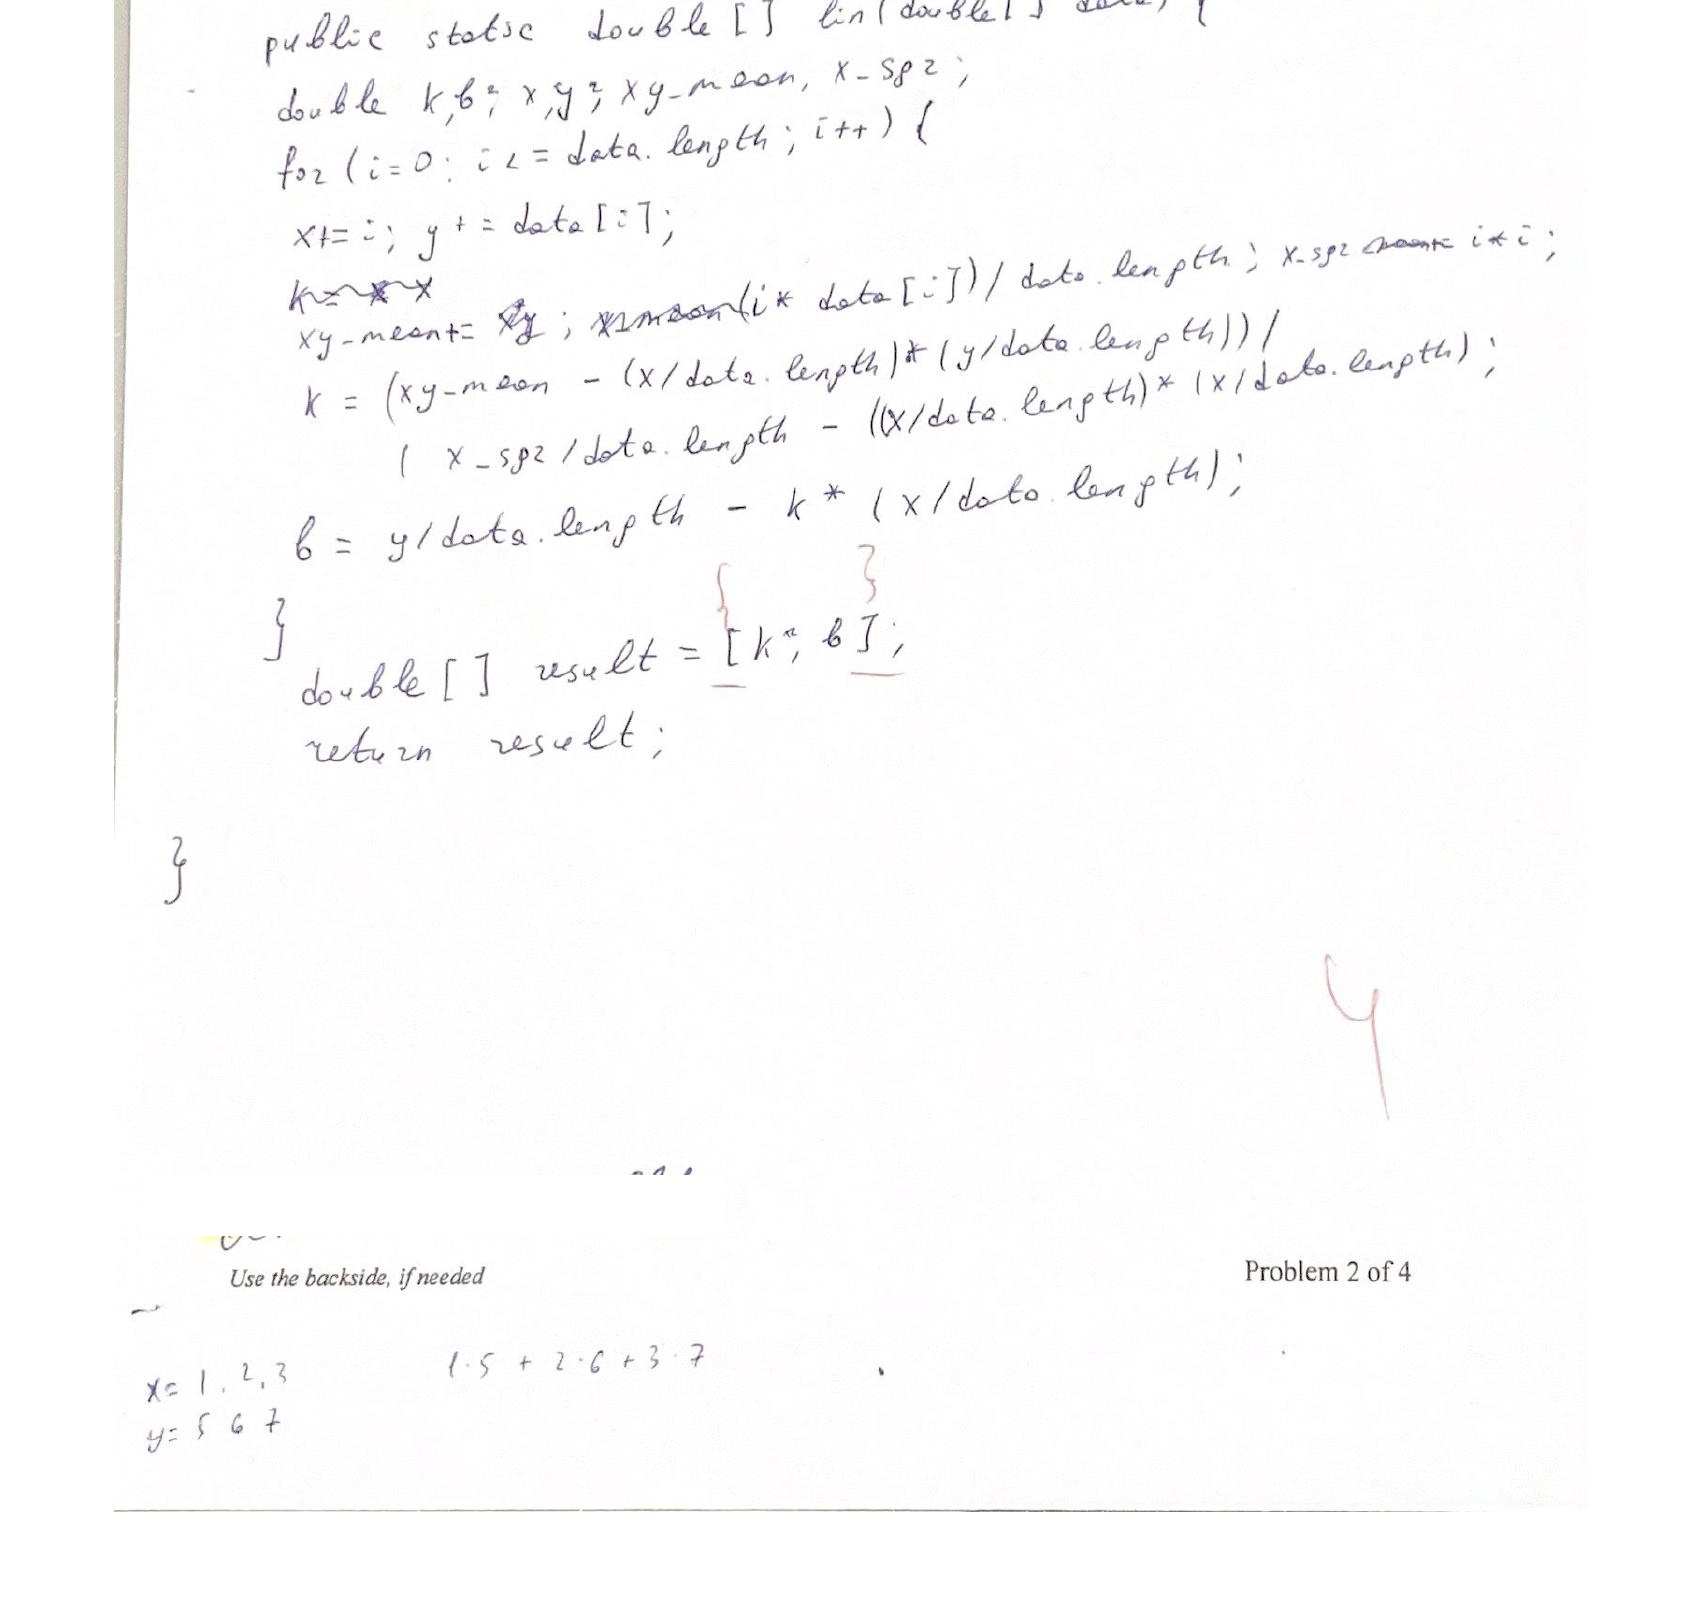 public static double [] lin(double[] data) {
double k, b; x, y; xy-mean, x-sqr;
for (i=0; i <= data.length; i++) {
x+= i; y += data[i];
xy-mean+= (i* data[i])/data.length; x-sqr i*i;
k = (xy-mean - (x/data.length)*(y/data.length))/
( x-sqr/data.length - ((x/data.length)* (x/data.length);
b = y/data.length - k* (x/data.length);
}
{ }
double [] result = [k, b];
return result;
}
4
Use the backside, if needed
Problem 2 of 4
x= 1, 2, 3
1·5 + 2·6 + 3·7
y= 5 6 7